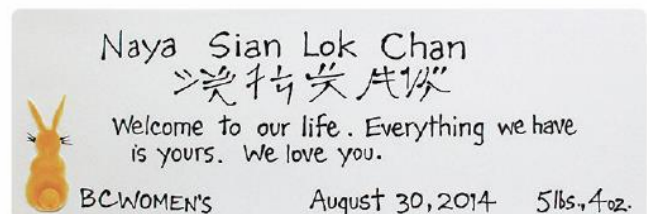 Naya Sian Lok Chan
Welcome to our life. Everything we have
is yours. We love you.
BCWOMEN'S August 30, 2014 5lbs., 4oz.